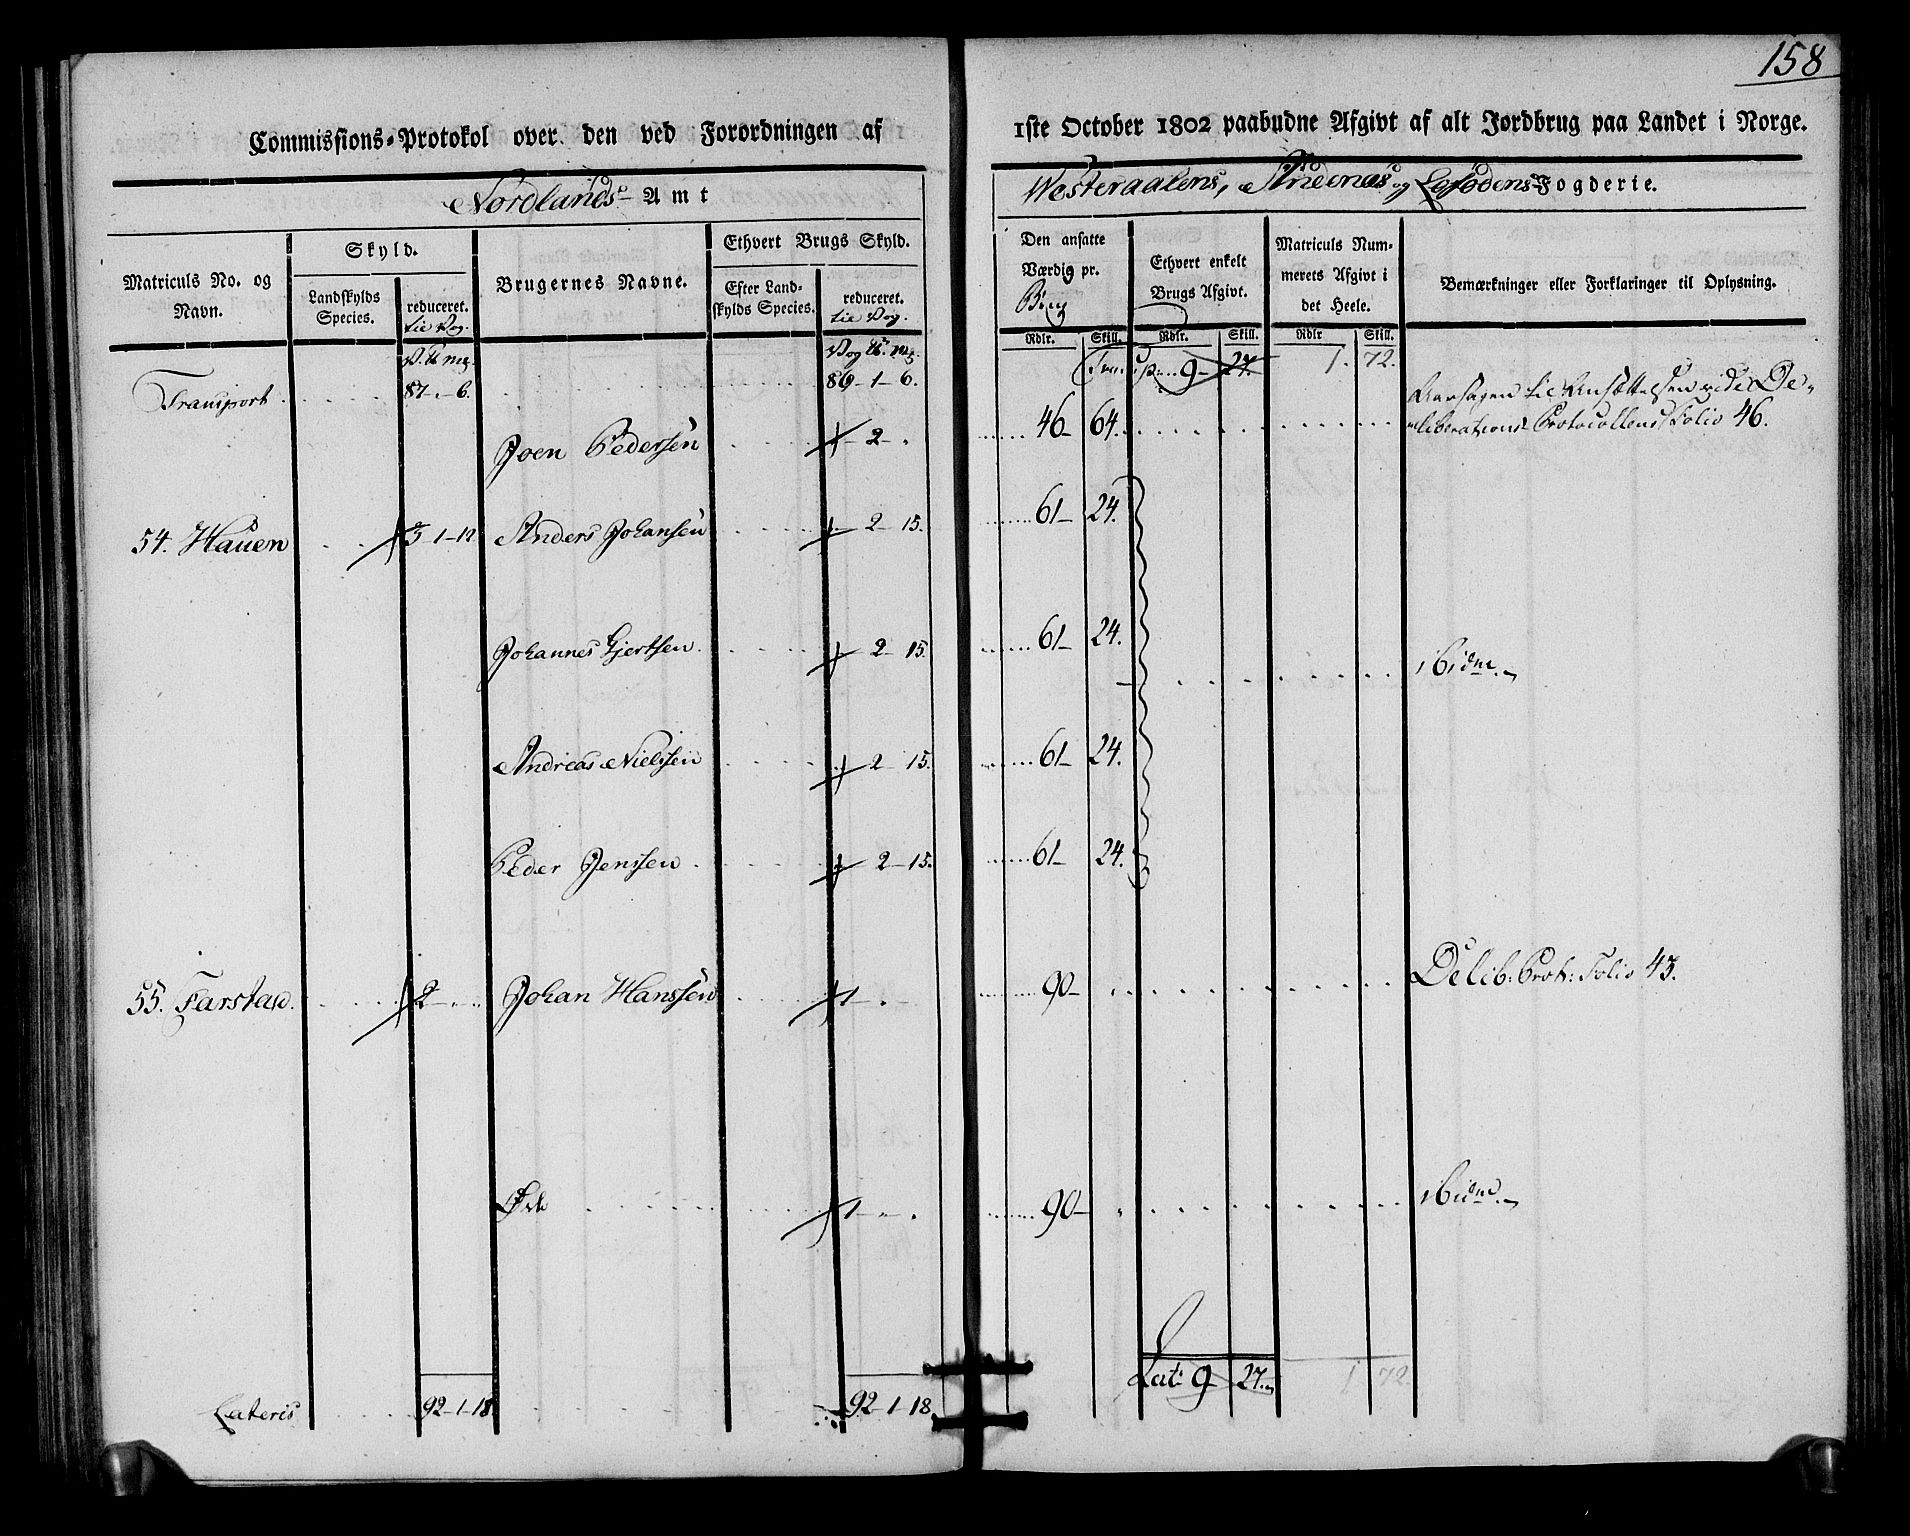 158
Commissions-Protokol over den ved Forordningen af 1ste October 1802 paabudne Afgivt af alt Jordbrug paa Landet i Norge.
Nordlands Amt
Westeraalens, Andenæs og Lofodens Fogderie.
Matriculs No. og Navn.
Skyld.
Landskylds Species.
reduceret. til Vog.
Brugernes Navne.
Ethvert Brugs Skyld.
Efter Landskylds Species.
reduceret. til Vog.
Den ansatte Værdie pr. Brug
Ethvert enkelt Brugs Afgivt.
Matriculs Nummerets Afgivt i det Heele.
Bemærkninger eller Forklaringer til Oplysning.
Rdlr. Skill. Rdlr. Skill. Rdlr Skill.
Transport 87 - 6. 86-1-6. 9 - 27. 1. 72.
Joen Pedersen - 2 - . 46 - 64. Aarsagen til Ansættelsen vide Deliberations Protocollens Folio 46.
54. Hauen 3-1-12 Anders Johansen - 2 - 15. 61 - 24.
Johannes Gjertsen - 2 - 15. 61 - 24. ibidm.
Andreas Nielssen - 2 - 15. 61 - 24.
Peder Jenssen - 2 - 15. 61 - 24.
55. Farstad. 2 - . - . Johan Hanssen 1 - . - 90 - . Delib: Prot: Folio 43.
Øde 1 - . - . 90 - . ibidm.
Lateris 92-1-18 92-1-18 Lat: 9 27. 1 72